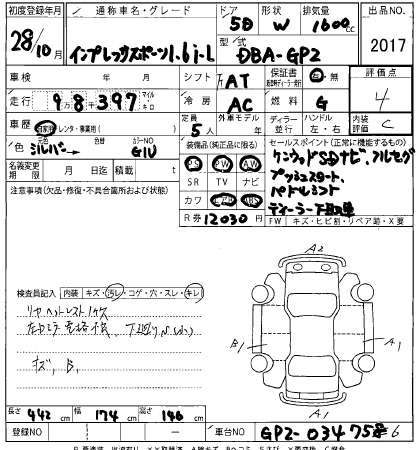 初度登録年月 通称車名・グレード ドア 形状 排気量 出品NO.
28/10月 インプレッサスポーツ1.6i-L 5D W 1600cc 2017
型式 DBA-GP2
車検 年 月 シフト AT 保証書 有・無 評価点
走行 98397 マイル キロ 冷房 AC 燃料 G 4
車歴 自家用・レンタ・事業用( ) 定員 5人 外車モデル 年 ディーラー 並行 ハンドル 左・右 内装評価 C
色 シルバー 色替 カラーNO G1U 装備品(純正品に限る) セールスポイント(正常に機能する装備)
名義変更期限 月 日迄 積載 t PS PW AW ケンウッドSDナビ、フルセグ
注意事項(欠品・修復・不具合箇所および状態) SR TV ナビ プッシュスタート、
カワ エアB ABS パドルシフト
R券 12030円 ディーラー下取車
FW キズ・ヒビ割・リペア跡・X要
検査員記入 内装 キズ・汚レ・コゲ・穴・スレ・キレ
リヤヘッドレスト1ケ欠
キズ, B,
A2
B1 A1
A1
長さ 442cm 幅 174cm 高さ 146cm
登録NO 車台NO GP2-034758 6